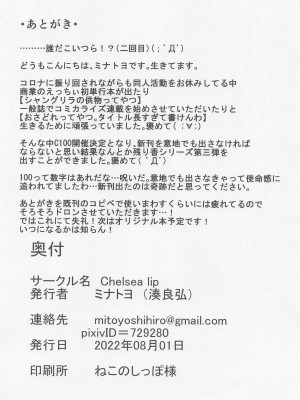 ・あとがき・
………誰だこいつら！？(二回目)(；ﾟДﾟ)
どうもこんにちは、ミナトヨです。生きてます。
コロナに振り回されながらも同人活動をお休みしてる中
商業のえっちぃ初単行本が出たり
【シャングリラの供物ってやつ】
一般誌でコミカライズ連載を始めさせていただいたりと
【おさどれってやつ。タイトル長すぎて書けんわ】
生きるために頑張っていました。褒めて(；∀；)
そんな中C100開催決定となり、新刊を意地でも出さなければ
ならないと思い結果なんとか残り香シリーズ第三弾を
出すことができました。褒めて(ﾟДﾟ)
100って数字はあれだな…呪いだ。意地でも出さなきゃって使命感に
追われてましたわ…新刊出たのは奇跡だと思ってください。
あとがきを既刊のコピペで使いまわすくらいには疲れてるので
そろそろドロンさせていただきます…！
ではこれにて失礼！次はオリジナル本予定です！
いつになるかは知らん！
奥付
サークル名 Chelsea lip
発行者 ミナトヨ （湊良弘）
連絡先 mitoyoshihiro@gmail.com
pixivID＝729280
発行日 2022年08月01日
印刷所 ねこのしっぽ様